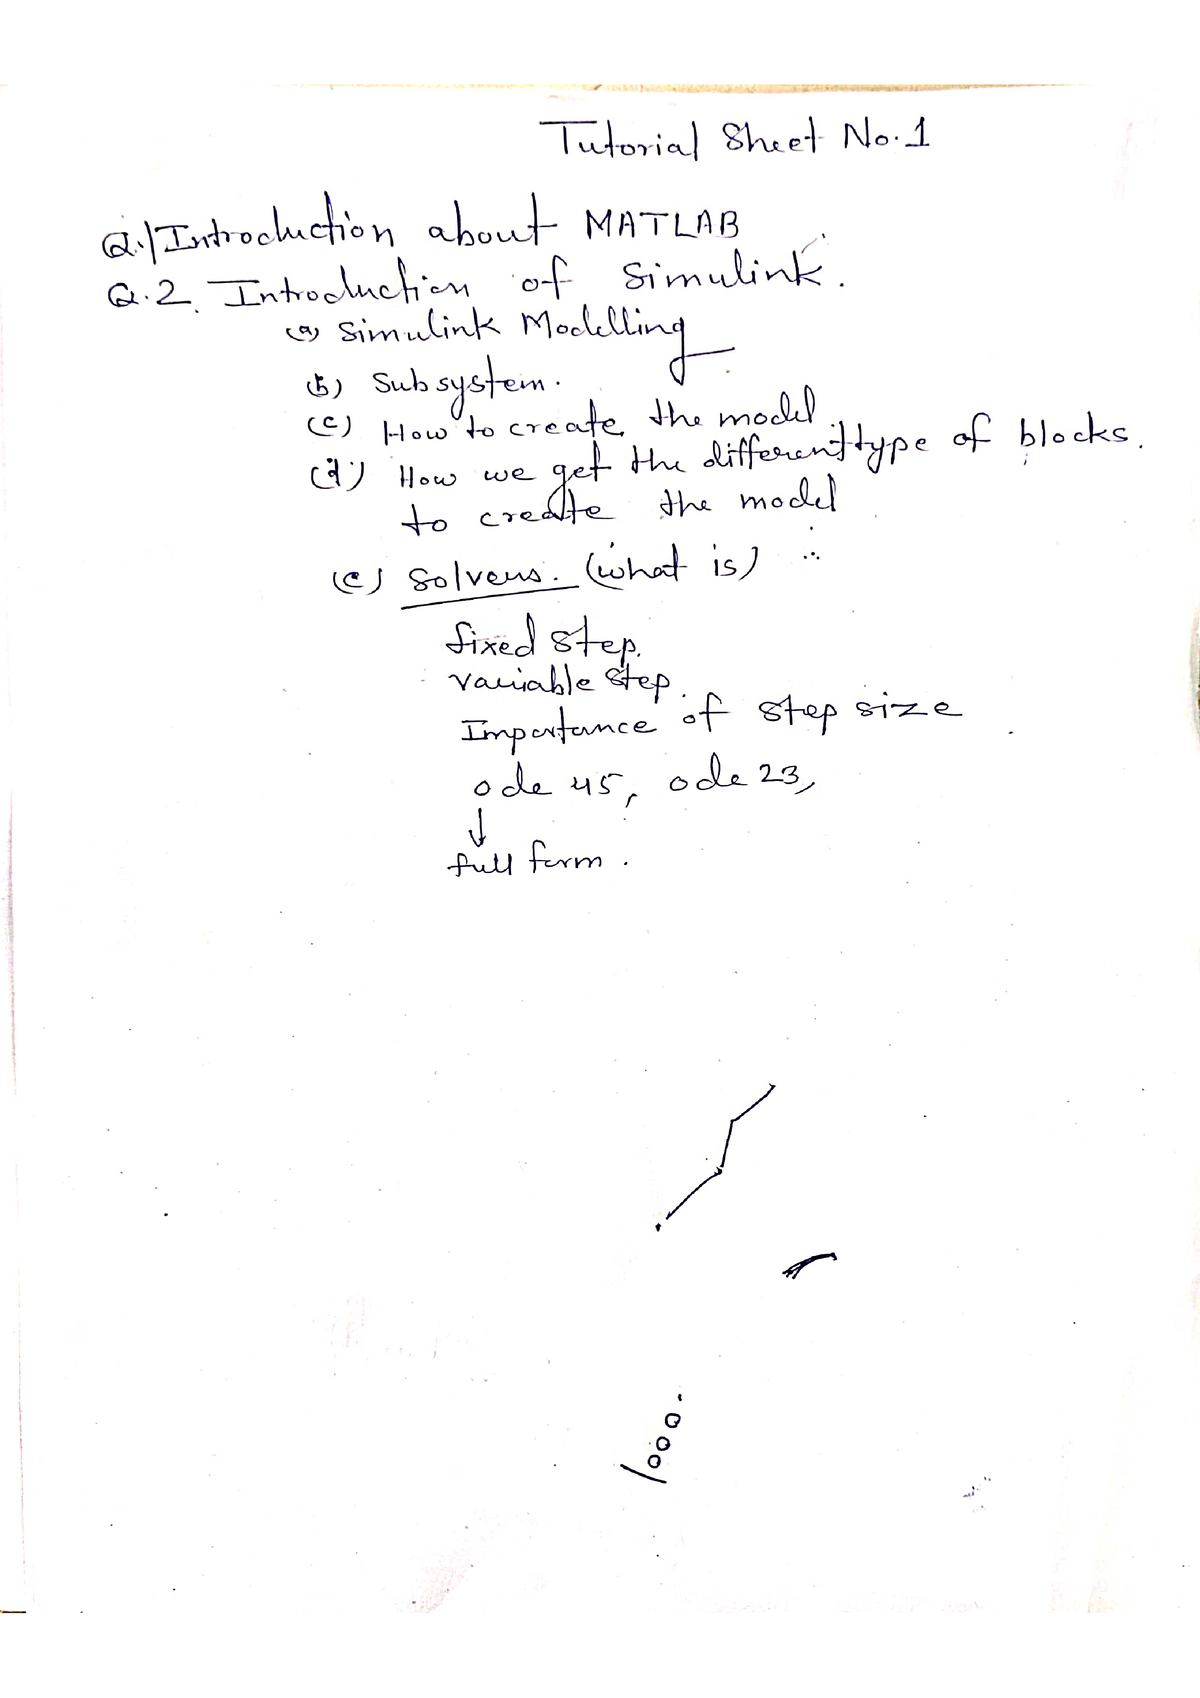 Tutorial Sheet No.1
Q.1 Introduction about MATLAB
Q.2. Introduction of Simulink.
(a) Simulink Modelling
(b) Subsystem.
(c) How to create the model.
(d) How we get the different type of blocks.
to create the model
(e) Solvers. (what is)
fixed step.
variable step.
Importance of step size
ode 45, ode 23,
↓
full form.
1000.